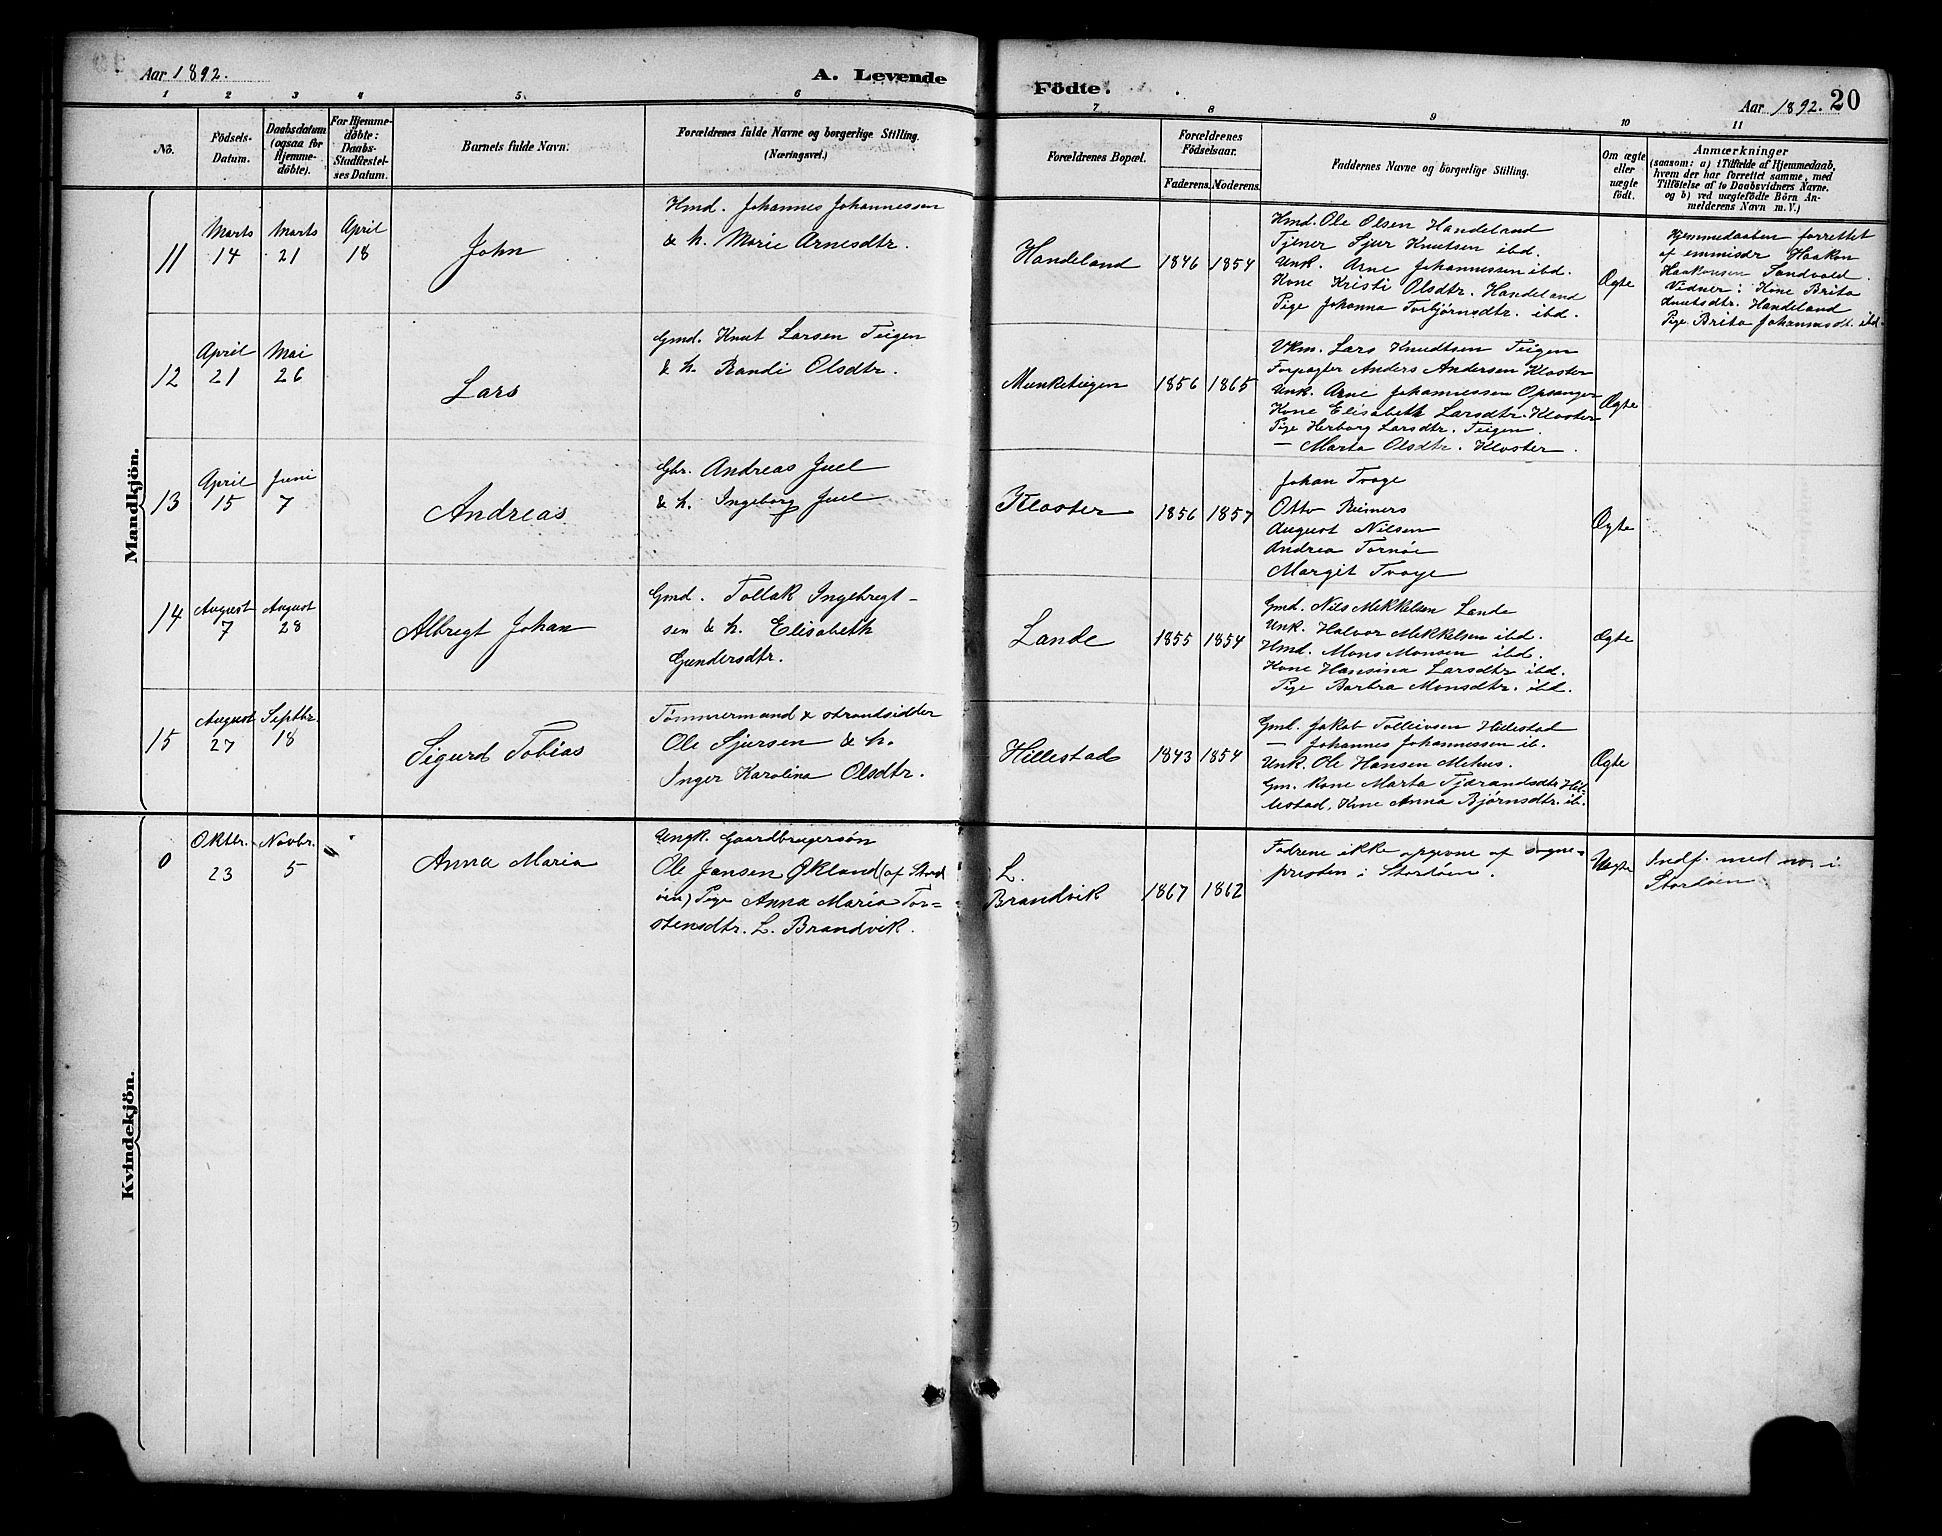 Aar 1892.
A. Levende
Födte.
Aar 1892. 20
1 2 3 4 5 6 7 8 9 10 11
No.
Födsels-
Datum.
Daabsdatum
(ogsaa for
Hjemme-
døbte).
For Hjemme-
døbte:
Daabs-
Stadfæstel-
ses Datum.
Barnets fulde Navn.
Forældrenes fulde Navne og borgerlige Stilling.
(Næringsvei.)
Forældrenes Bopæl.
Forældrenes
Födselsaar.
Faderens. Moderens.
Faddernes Navne og borgerlige Stilling.
Om ægte
eller
uægte
født.
Anmærkninger
(saasom: a) i Tilfælde af Hjemmedaab,
hvem der har forrettet samme, med
Tilføielse af to Daabsvidners Navne.
og b) ved uægtefødte Börn An-
melderens Navn m. V.)
Mandkjön.
11
Marts
14
Marts
21
April
18
John
Hmd. Johannes Johannessen
& h. Marie Arnesdtr.
Handeland
1846 1854
Hmd. Ole Olsen Handeland
Tjener Sjur Knutsen ibd.
Unk. Arne Johannessen ibd.
Kone Kristi Olsdtr. Handeland
Pige Johanna Torbjørnsdtr. ibd.
Ægte
Hjemmedaaben forrettet
af emmisær Haakon
Haakonsen Sandvold.
Vidner: Kone Brita
Knutsdtr. Handeland
Pige Brita Johannesdt. ibd.
12
April
21
Mai
26
Lars
Gmd. Knut Larsen Teigen
& h. Randi Olsdtr.
Munketeigen
1856 1865
Vkm. Lars Knudtsen Teigen
Forpagter Anders Andersen Kloster
Unk. Arne Johannessen Opsanger
Kone Elisabeth Larsdtr. Kloster
Pige Herborg Larsdtr. Teigen.
— Marta Olsdtr. Kloster.
Ægte
13
April
15
Juni
7
Andreas
Gbr. Andreas Juel
& h. Ingeborg Juel
Kloster
1856 1857
Johan Troye
Otto Reimers
August Nilsen
Andrea Tornøe
Margit Troye
Ægte
14
August
7
August
28
Albregt Johan
Gmd. Tollak Ingebregt-
sen & h. Elisabeth
Gundersdtr.
Lande
1855 1854
Gmd. Nils Mekkelsen Lande
Unk. Halvor Mekkelsen ibd.
Hmd. Mons Monsen ibd.
Kone Hansina Larsdtr ibd.
Pige Barbra Monsdtr. ibd.
Ægte
15
August
27
Septbr.
18
Sigurd Tobias
Tømmermand & strandsidder
Ole Sjursen & h.
Inger Karolina Olsdtr.
Hillestad
1843 1854
Gmd. Jakob Tolleivsen Hillestad
— Johannes Johannessen ib.
Unk. Ole Hansen Mehus.
Gm. kone Marta Tjærandsdtr. Hil-
lestad, Kone Anna Bjørnsdtr. ib.
Ægte
Kvindekjön.
0
Oktbr.
23
Novbr.
5
Anna Maria
Ungk. Gaardbrugersøn
Ole Jansen Økland (af Stord
øen) Pige Anna Maria Tor=
stensdtr. L. Brandvik.
L.
Brandvik
1867 1862
Fadrene ikke opgevne af sogne=
presten i Stordøen.
Uægte
Indf. med no. i
Stordøen